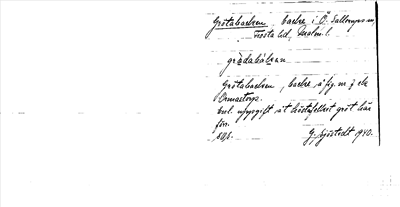 Grötabacken, backe i Ö. Sallerups sn,
Frosta hd, Malm. l.
grødabákan
Grötabacken, backe å fig. nr 7 ek
Ormastorp.
enl. uppgift åt höstafolket gröt här
förr.
G. Sjöstedt 1940.